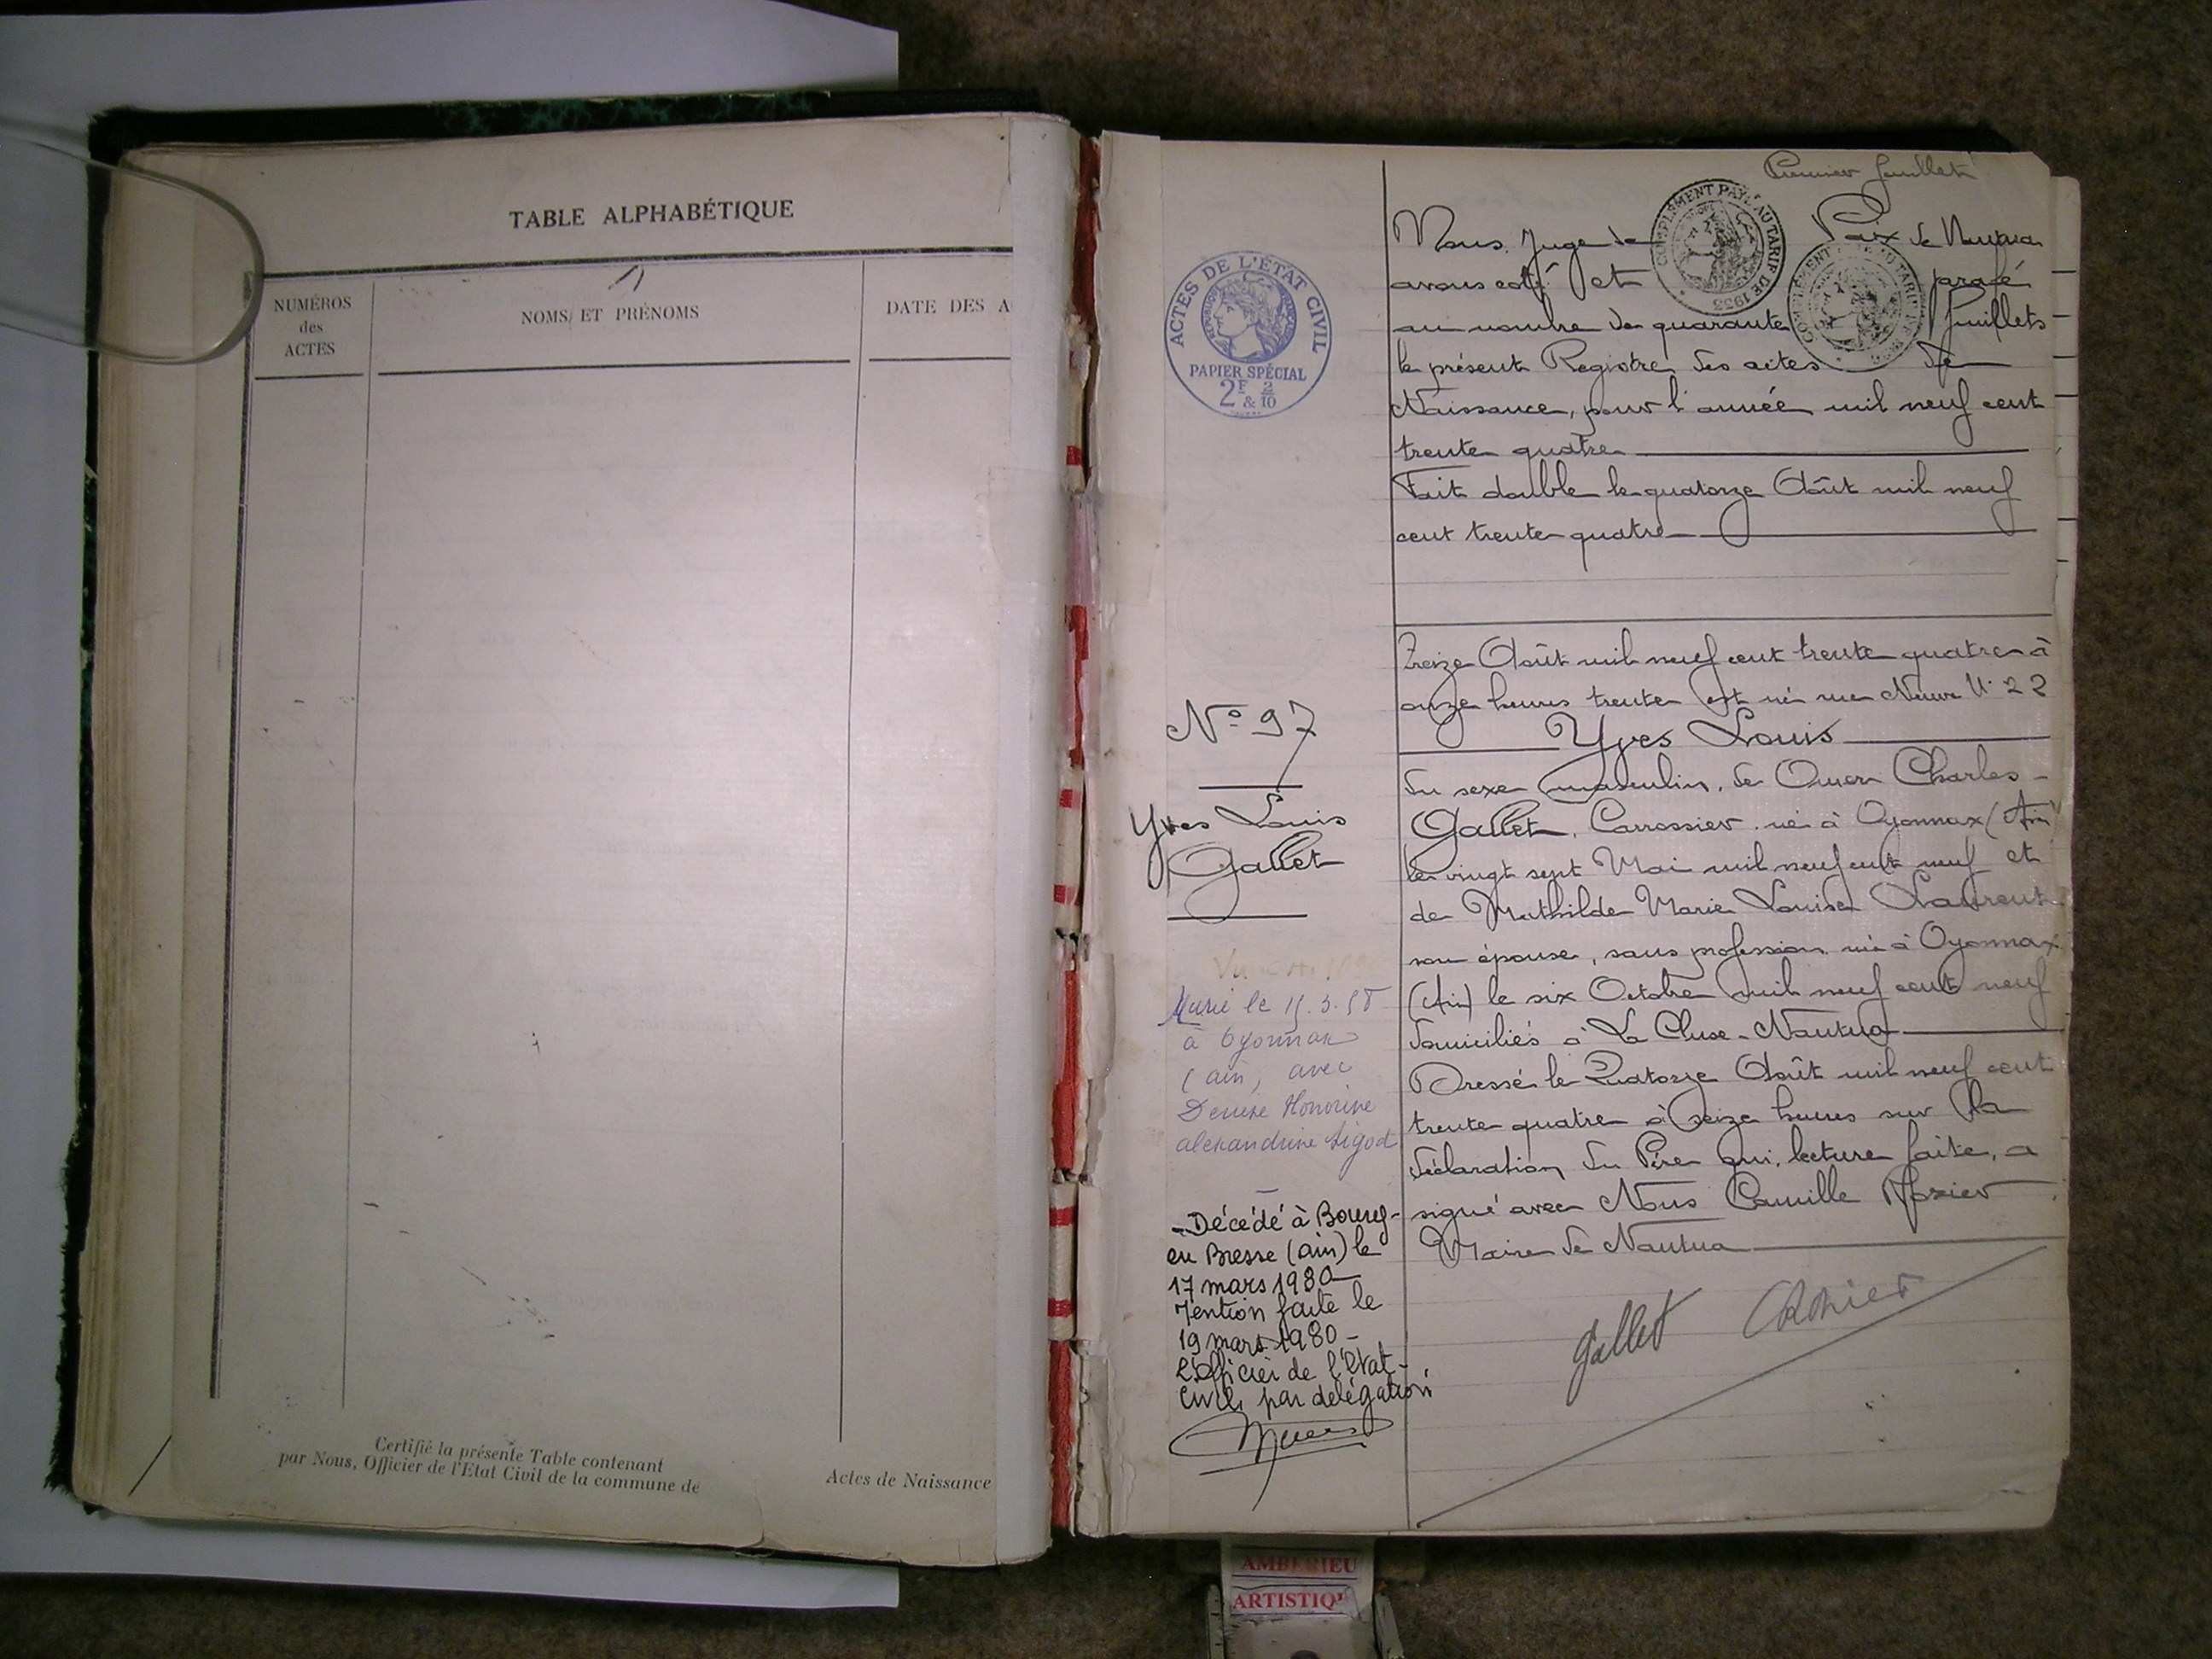 TABLE ALPHABÉTIQUE
NUMÉROS
des
ACTES
NOMS ET PRÉNOMS
DATE DES A
Certifié la présente Table contenant
par Nous, Officier de l'Etat Civil de la commune de
Actes de Naissance
Premier feuillet
COMPLÉMENT PAYÉ AU TARIF DE 1933
ACTES DE L'ÉTAT CIVIL
RÉPUBLIQUE FRANÇAISE
PAPIER SPÉCIAL
2F & 2/10
Nous Juge de Paix de Nantua
avons coté et parafé
au nombre de quarante feuillets
le présent Registre des actes de
Naissance, pour l'année mil neuf cent
trente quatre
Fait double le quatorze Août mil neuf
cent trente quatre
N° 97
Yves Louis
Gallet
Marié le
à Oyonnax
(ain) avec
Denise Honorine
alexandrine
- Décédé à Bourg-
en Bresse (ain) le
17 mars 1980
Mention faite le
19 mars 1980 -
L'Officier de l'Etat-
Civil, par délégation
Treize Août mil neuf cent trente quatre à
onze heures trente est né rue Neuve N° 22
Yves Louis
du sexe masculin, de Omer Charles
Gallet, Carrossier né à Oyonnax (Ain)
le vingt sept Mai mil neuf cent neuf et
de Mathilde Marie Louise Laurent
son épouse, sans profession née à Oyonnax
(Ain) le six Octobre mil neuf cent neuf
domiciliés à La Cluse-Nantua
Dressé le Quatorze Août mil neuf cent
trente quatre à seize heures sur la
déclaration du Père qui, lecture faite, a
signé avec Nous Camille
Maire de Nantua
Gallet
AMBERIEU
ARTISTIQU